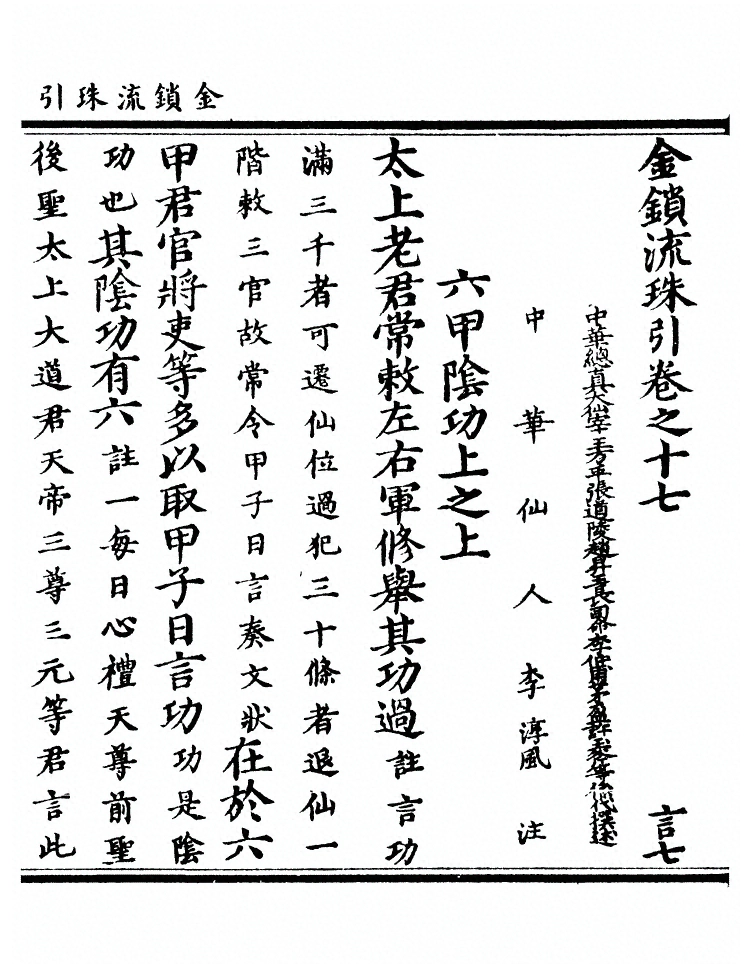 金鎖流珠引
金鎖流珠引卷之十七　言七
中華總真大仙宰王方平張道陵趙昇王長
中華仙人李淳風注
六甲陰功上之上
太上老君常敕左右軍修舉其功過註言功
滿三千者可遷仙位過犯三十條者退仙一
階敕三官故常令甲子日言奏文狀在於六
甲君官將吏等多以取甲子日言功功是陰
功也其陰功有六註一每日心禮天尊前聖
後聖太上大道君天帝三尊三元等君言此